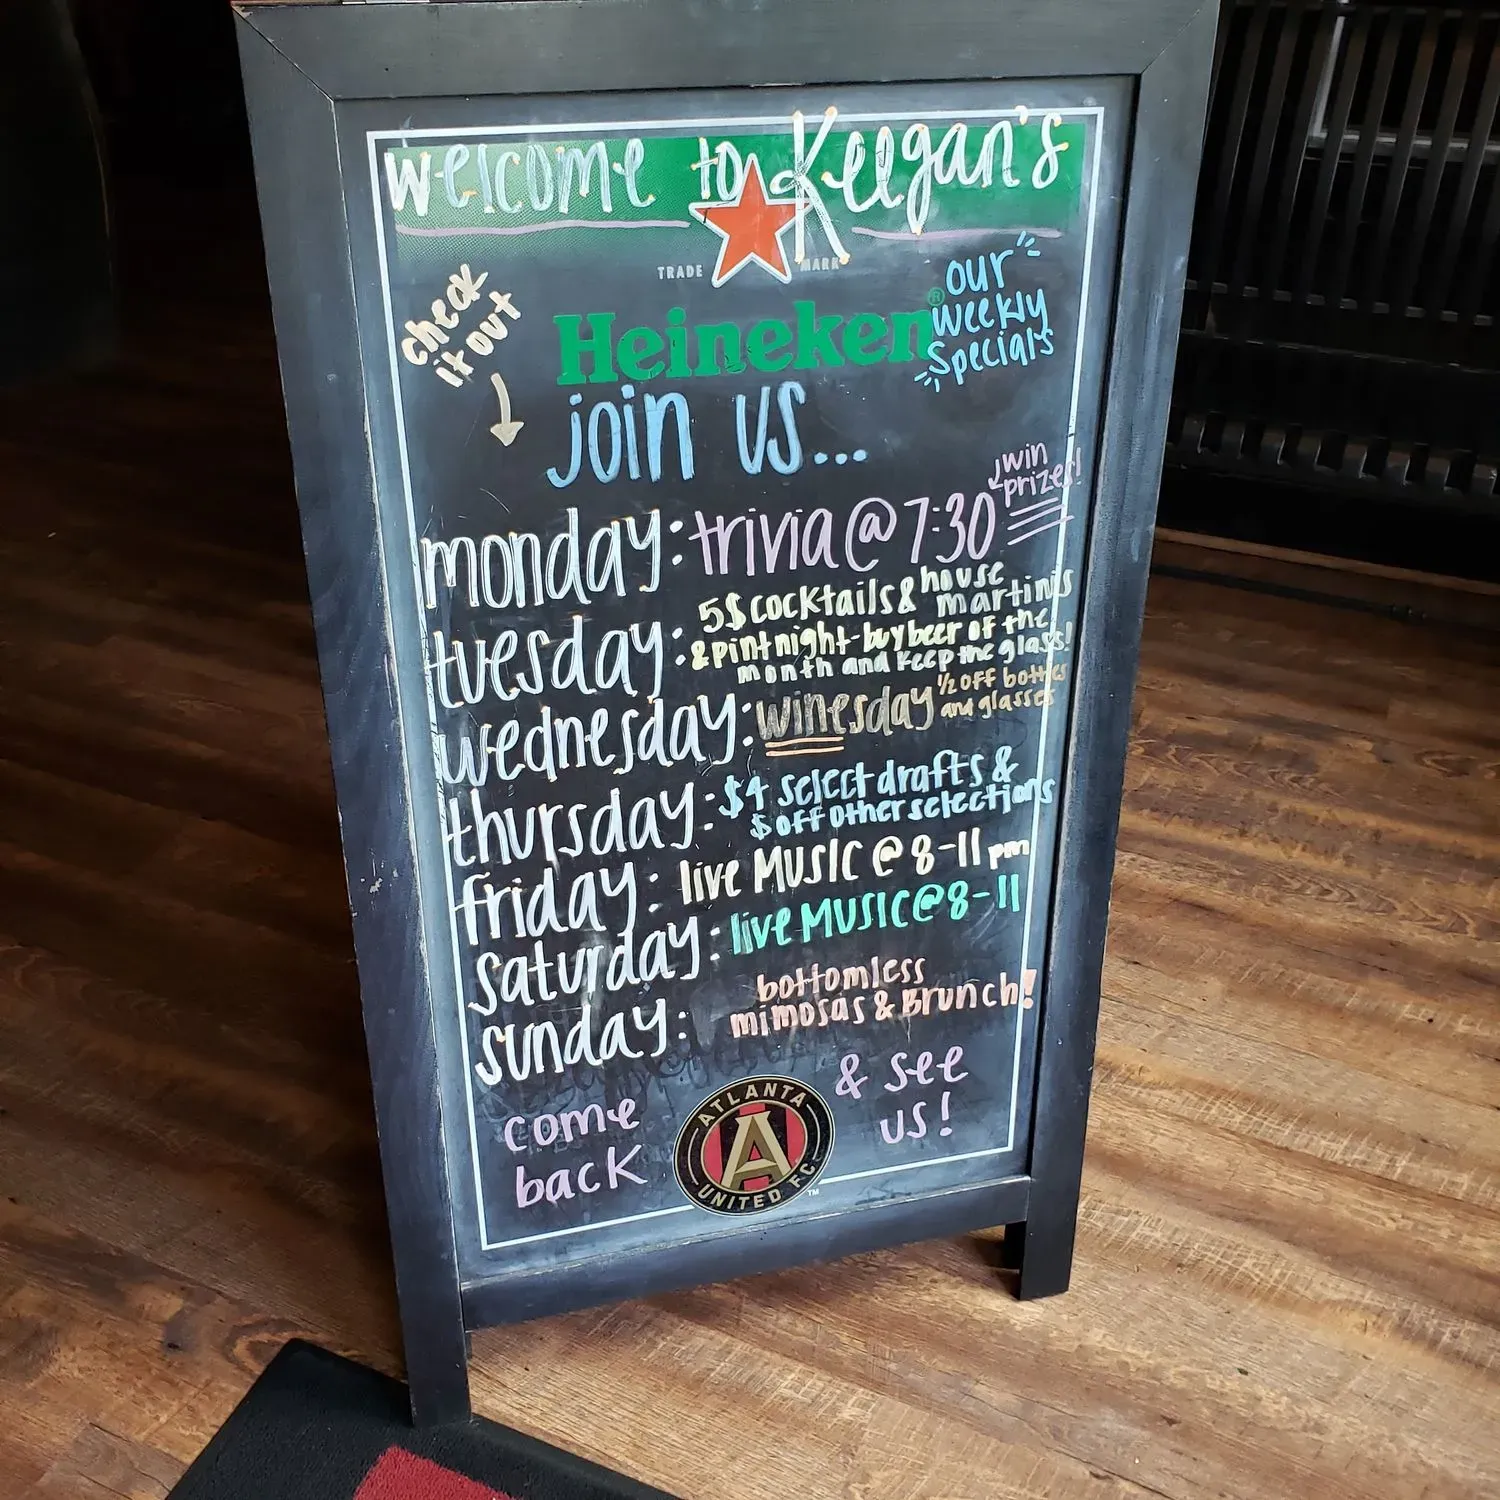 welcome to Keegan's
TRADE MARK
check
it out
our
weekly
specials
Heineken®
join us...
win
prizes!
monday: trivia @ 7:30
tuesday: 5$ cocktails & house martinis
& pint night - buy beer of the
month and keep the glass!
wednesday: winesday 1/2 off bottles
and glasses
thursday: $4 select drafts &
$ off other selections
friday: live MUSIC @ 8-11 pm
saturday: live MUSIC @ 8-11
sunday: bottomless
mimosas & Brunch!
come
back
& see
us!
ATLANTA
A
UNITED FC
TM